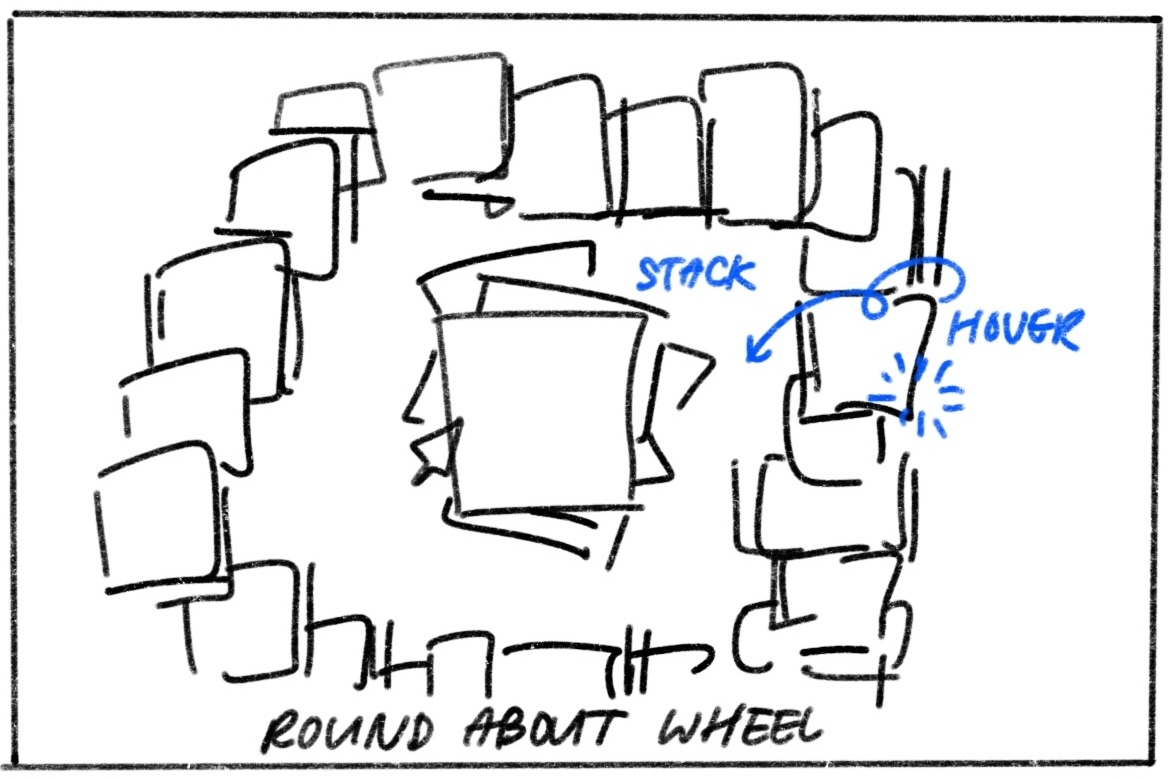 STACK
HOVER
ROUND ABOUT WHEEL